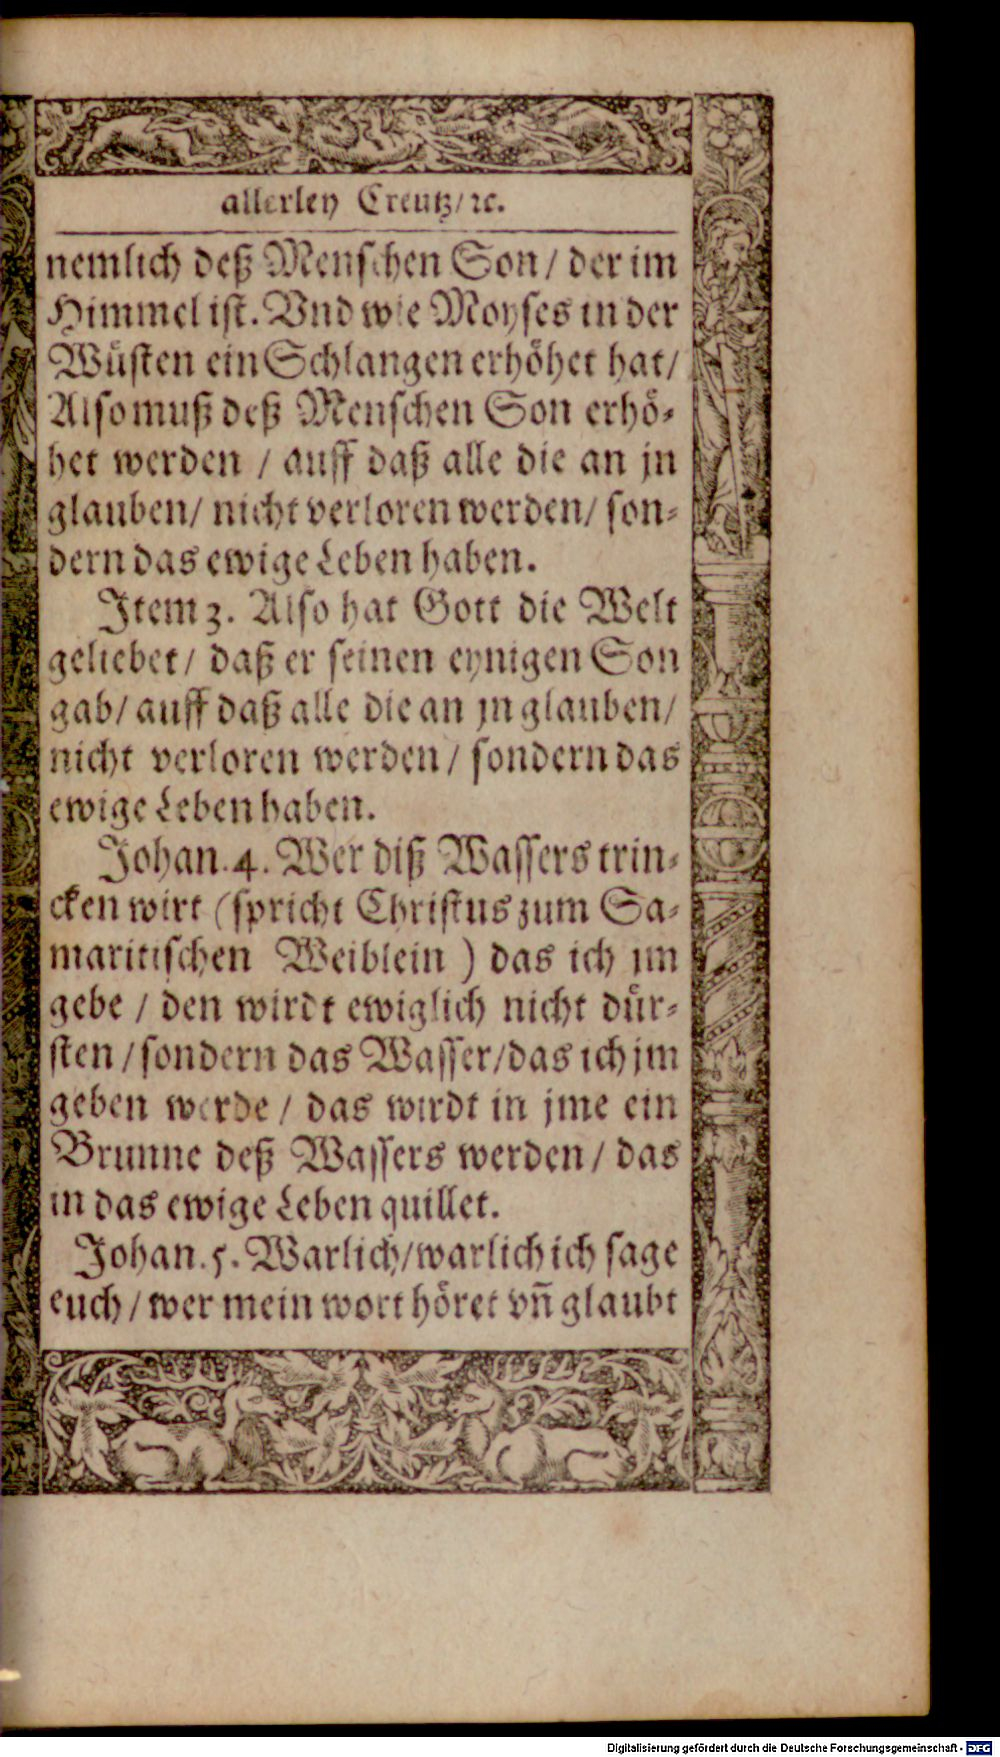 allerley Creutz/ꝛc.
nemlich deß Menschen Son / der im
Himmel ist. Vnd wie Moyses in der
Wüsten ein Schlangen erhöhet hat/
Also muß deß Menschen Son erhö-
het werden / auff daß alle die an jn
glauben/ nicht verloren werden/ son-
dern das ewige Leben haben.
Item 3. Also hat Gott die Welt
geliebet/ daß er seinen eynigen Son
gab/ auff daß alle die an jn glauben/
nicht verloren werden/ sondern das
ewige Leben haben.
Johan. 4. Wer diß Wassers trin-
cken wirt (spricht Christus zum Sa-
maritischen Weiblein ) das ich jm
gebe / den wirdt ewiglich nicht dür-
sten / sondern das Wasser/das ich jm
geben werde / das wirdt in jme ein
Brunne deß Wassers werden / das
in das ewige Leben quillet.
Johan. 5. Warlich/warlich ich sage
euch / wer mein wort höret vñ glaubt
Digitalisierung gefördert durch die Deutsche Forschungsgemeinschaft - DFG